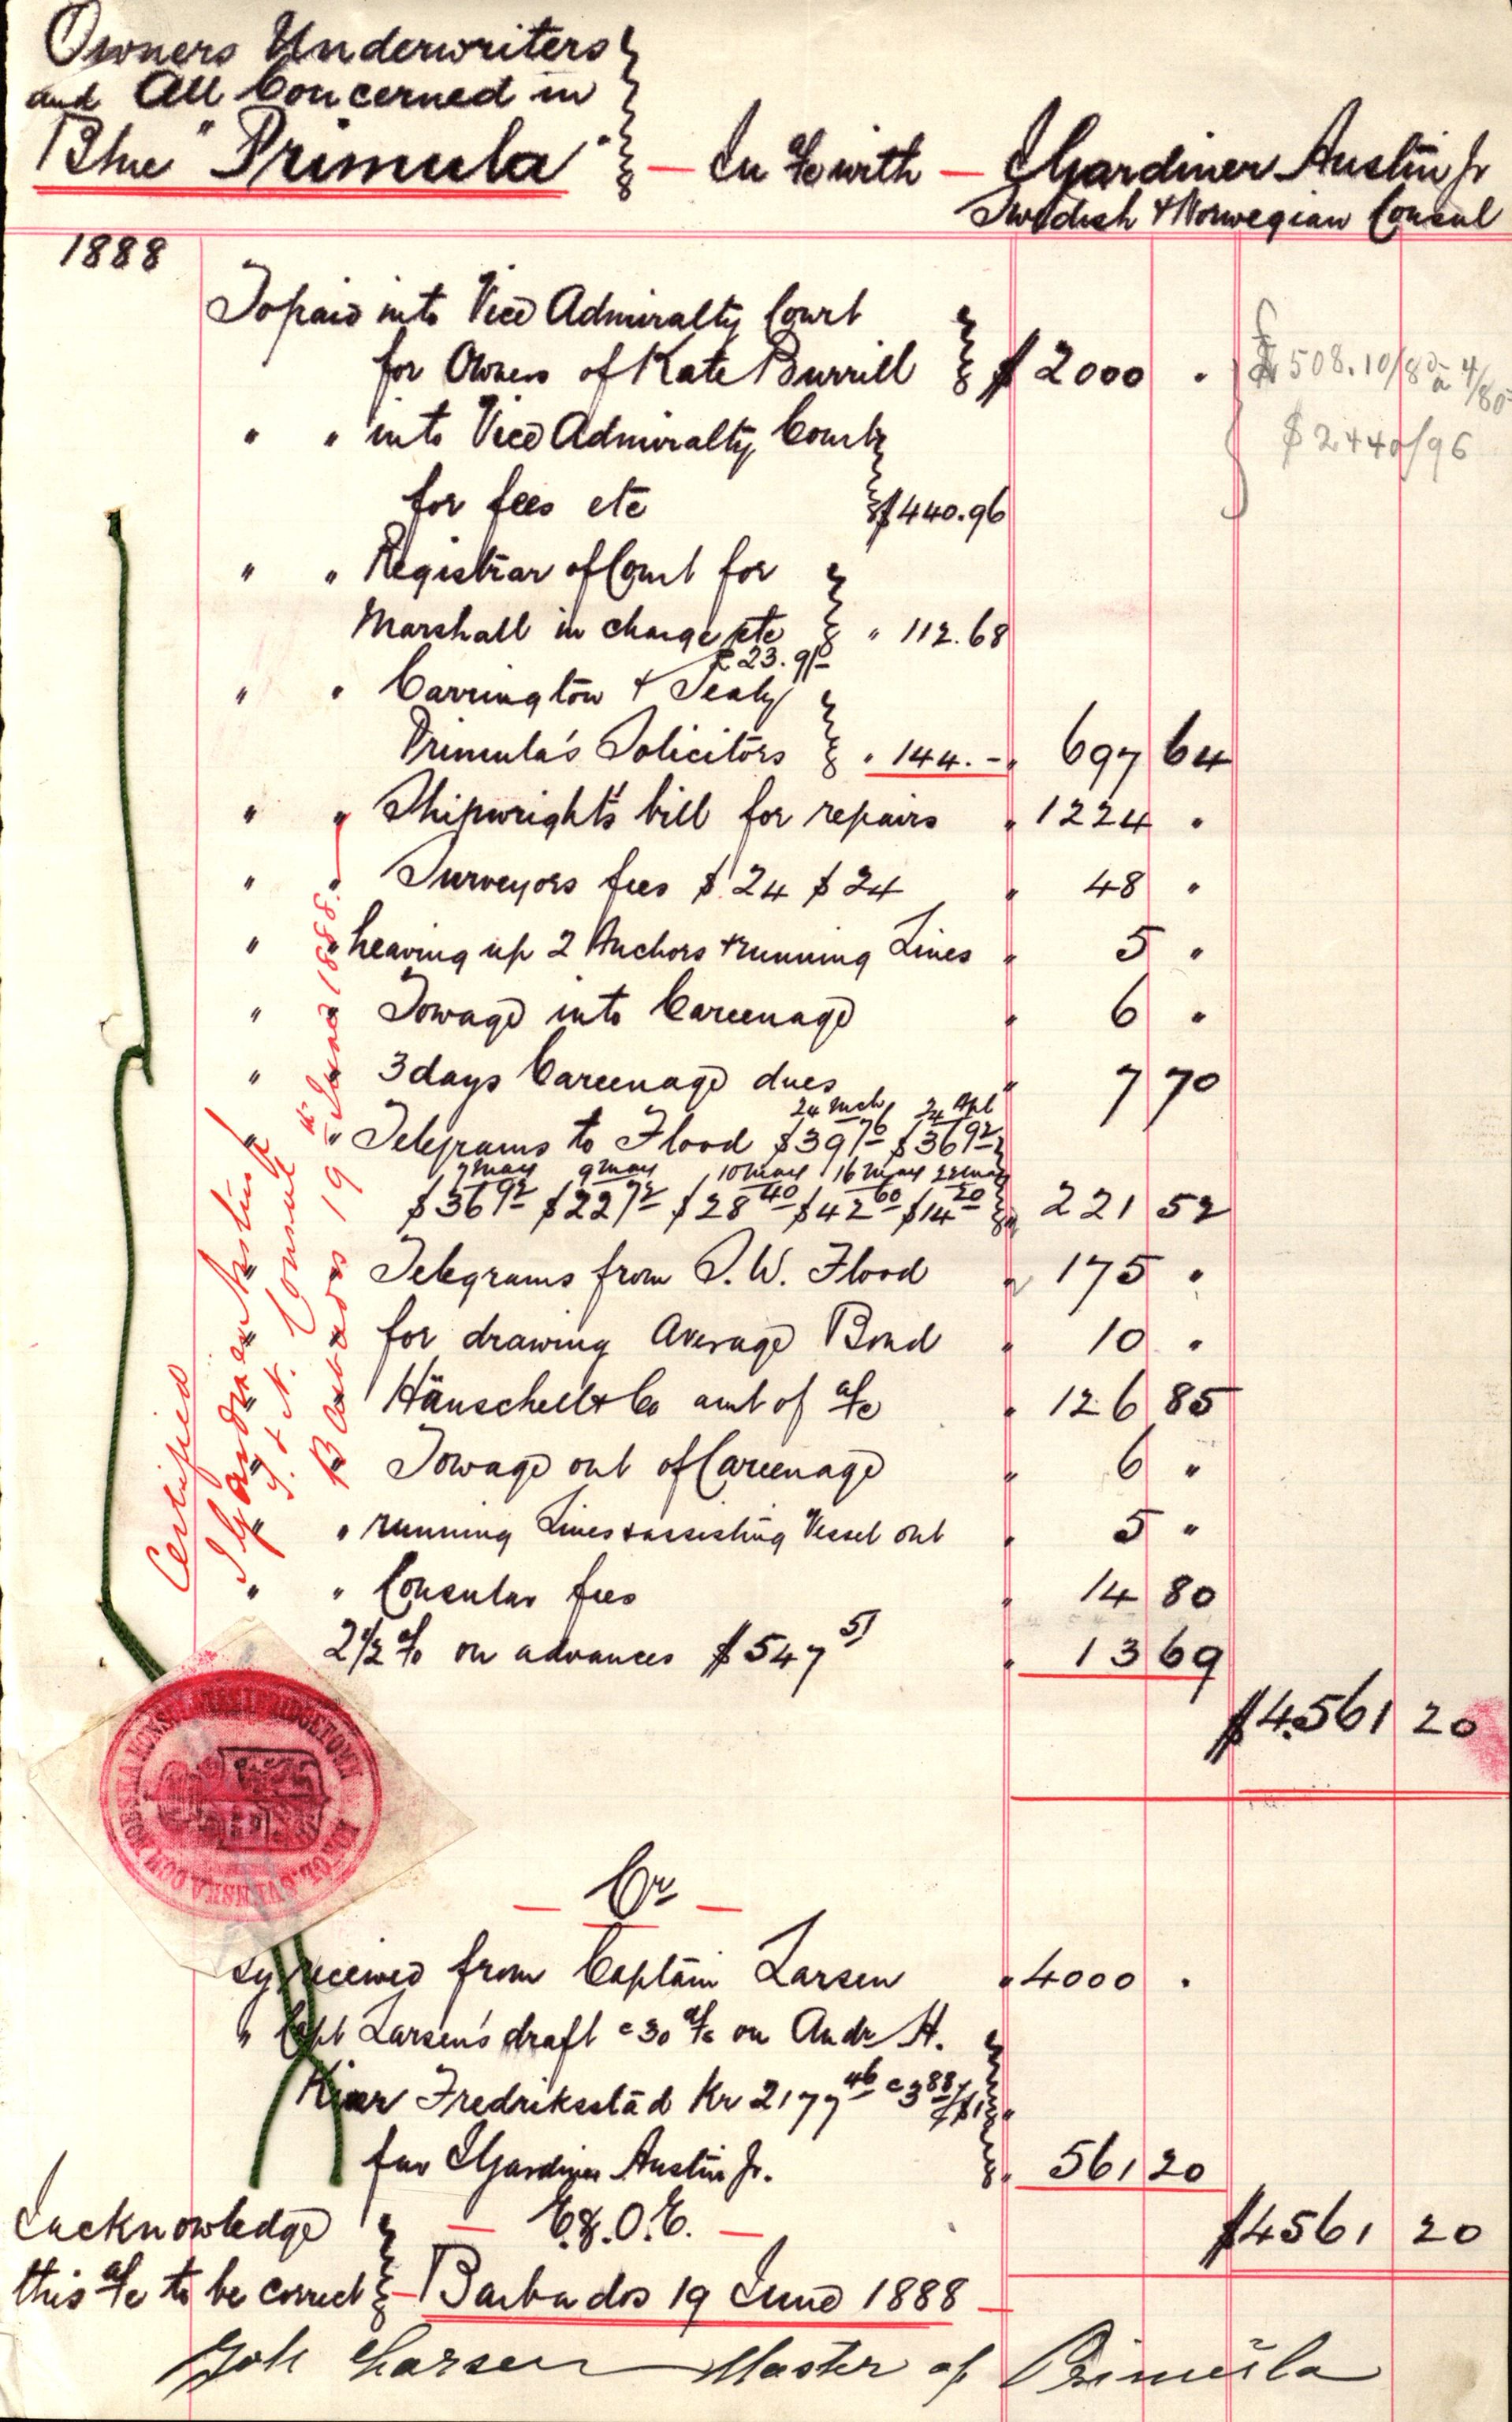 Owners Underwriters
and All Concerned in
Bkne "Primula" — In a/c with — J Gardiner Austin Jr
Swedish & Norwegian Consul
1888
To paid into Vice Admiralty Court
for Owners of Kate Burrill $ 2000 "
£508.10/8
$2440/96
" " into Vice Admiralty Court
for fees etc $440.96
" " Registrar of Court for
Marshall in charge etc " 112.68
£23.9/-
" " Carrington & Sealy
Primula's Solicitors " 144.- " 697 64
" " Shipwright's bill for repairs " 1224 "
" " Surveyors fees $24 $24 " 48 "
" " heaving up 2 Anchors & running Lines " 5 "
" " Towage into Careenage " 6 "
" " 3 days Careenage dues " 7 70
24 Mch 24 Apl
" " Telegrams to Flood $39 76 $36 92
7 May 9 May 10 May 16 May 22 May
$36 92 $22 72 $28 40 $42 60 $14 20 " 221 52
" " Telegrams from S.W. Flood " 175 "
" " for drawing Average Bond " 10 "
" " Hänschell & Co amt of a/c " 126 85
" " Towage out of Careenage " 6 "
" " running Lines & assisting Vessel out " 5 "
" " Consular fees " 14 80
2 1/2 % on advances $547 51 " 13 69
$4561 20
Certified
J Gardiner Austin Jr
S. & N. Consul
Barbados 19th June 1888.
KONGL. SVENSKA OCH NORSKA KONSULATET BRIDGETOWN
— Cr —
By received from Captain Larsen " 4000 "
" Capt Larsen's draft @ 30 d/s on Andr H.
Kiær Fredriksstad Kr 2177 46 @ 3 88 / $1
fav J Gardiner Austin Jr. " 561 20
— E.&.O.E. —
$4561 20
I acknowledge
this a/c to be correct — Barbados 19 June 1888 —
Joh Larsen Master of Primula